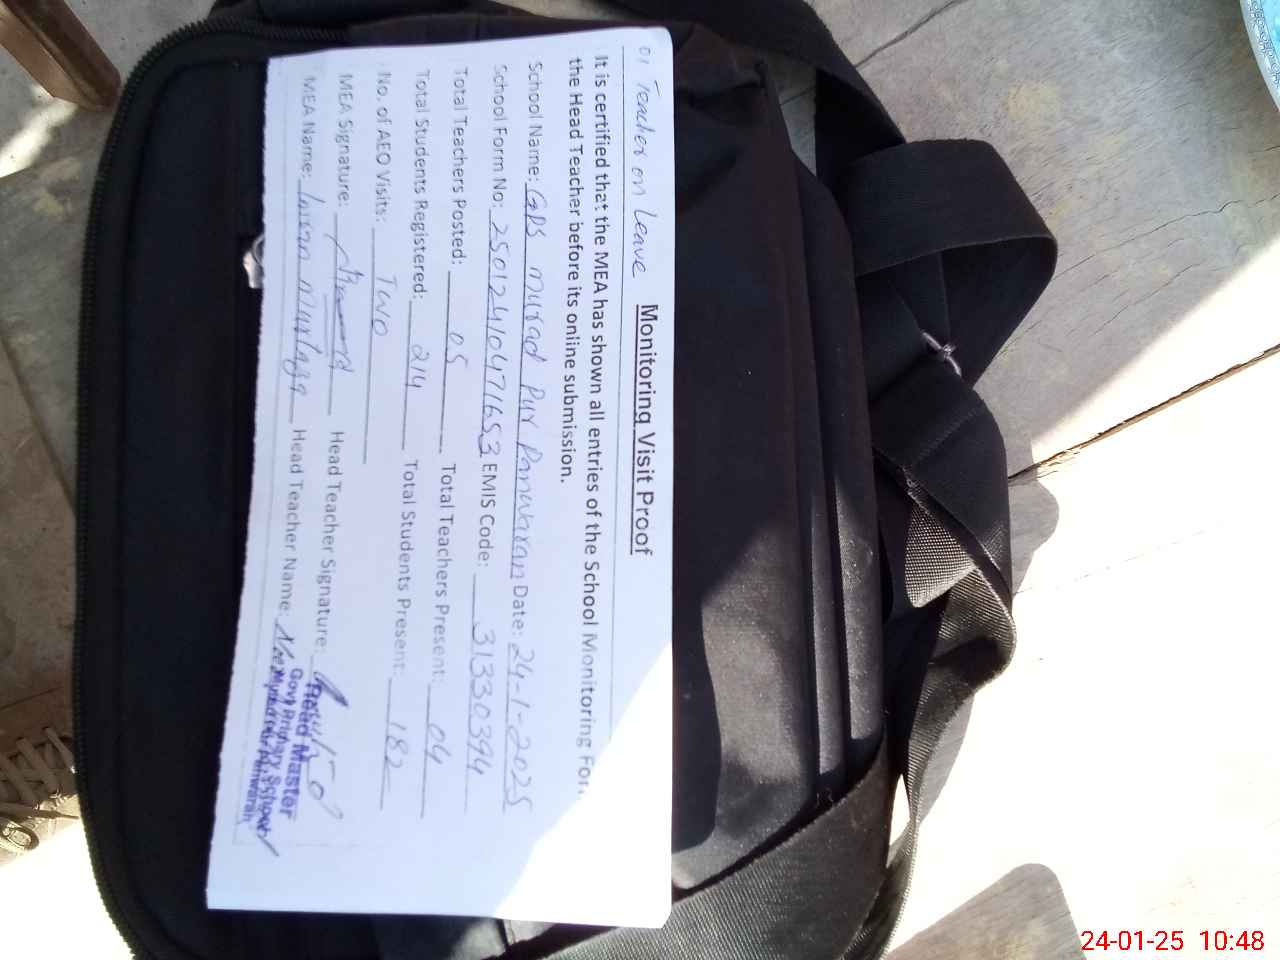 01 Teacher on Leave
Monitoring Visit Proof
It is certified that the MEA has shown all entries of the School Monitoring For
the Head Teacher before its online submission.
School Name: GPS Murad Pur Panwaran Date: 24-1-2025
School Form No: 25012410471653 EMIS Code: 31330394
Total Teachers Posted: 05 Total Teachers Present: 04
Total Students Registered: 214 Total Students Present: 182
No. of AEO Visits: Two
MEA Signature: Head Teacher Signature:
MEA Name: Murtaza Head Teacher Name:
Head Master
Govt Primary School
24-01-25 10:48